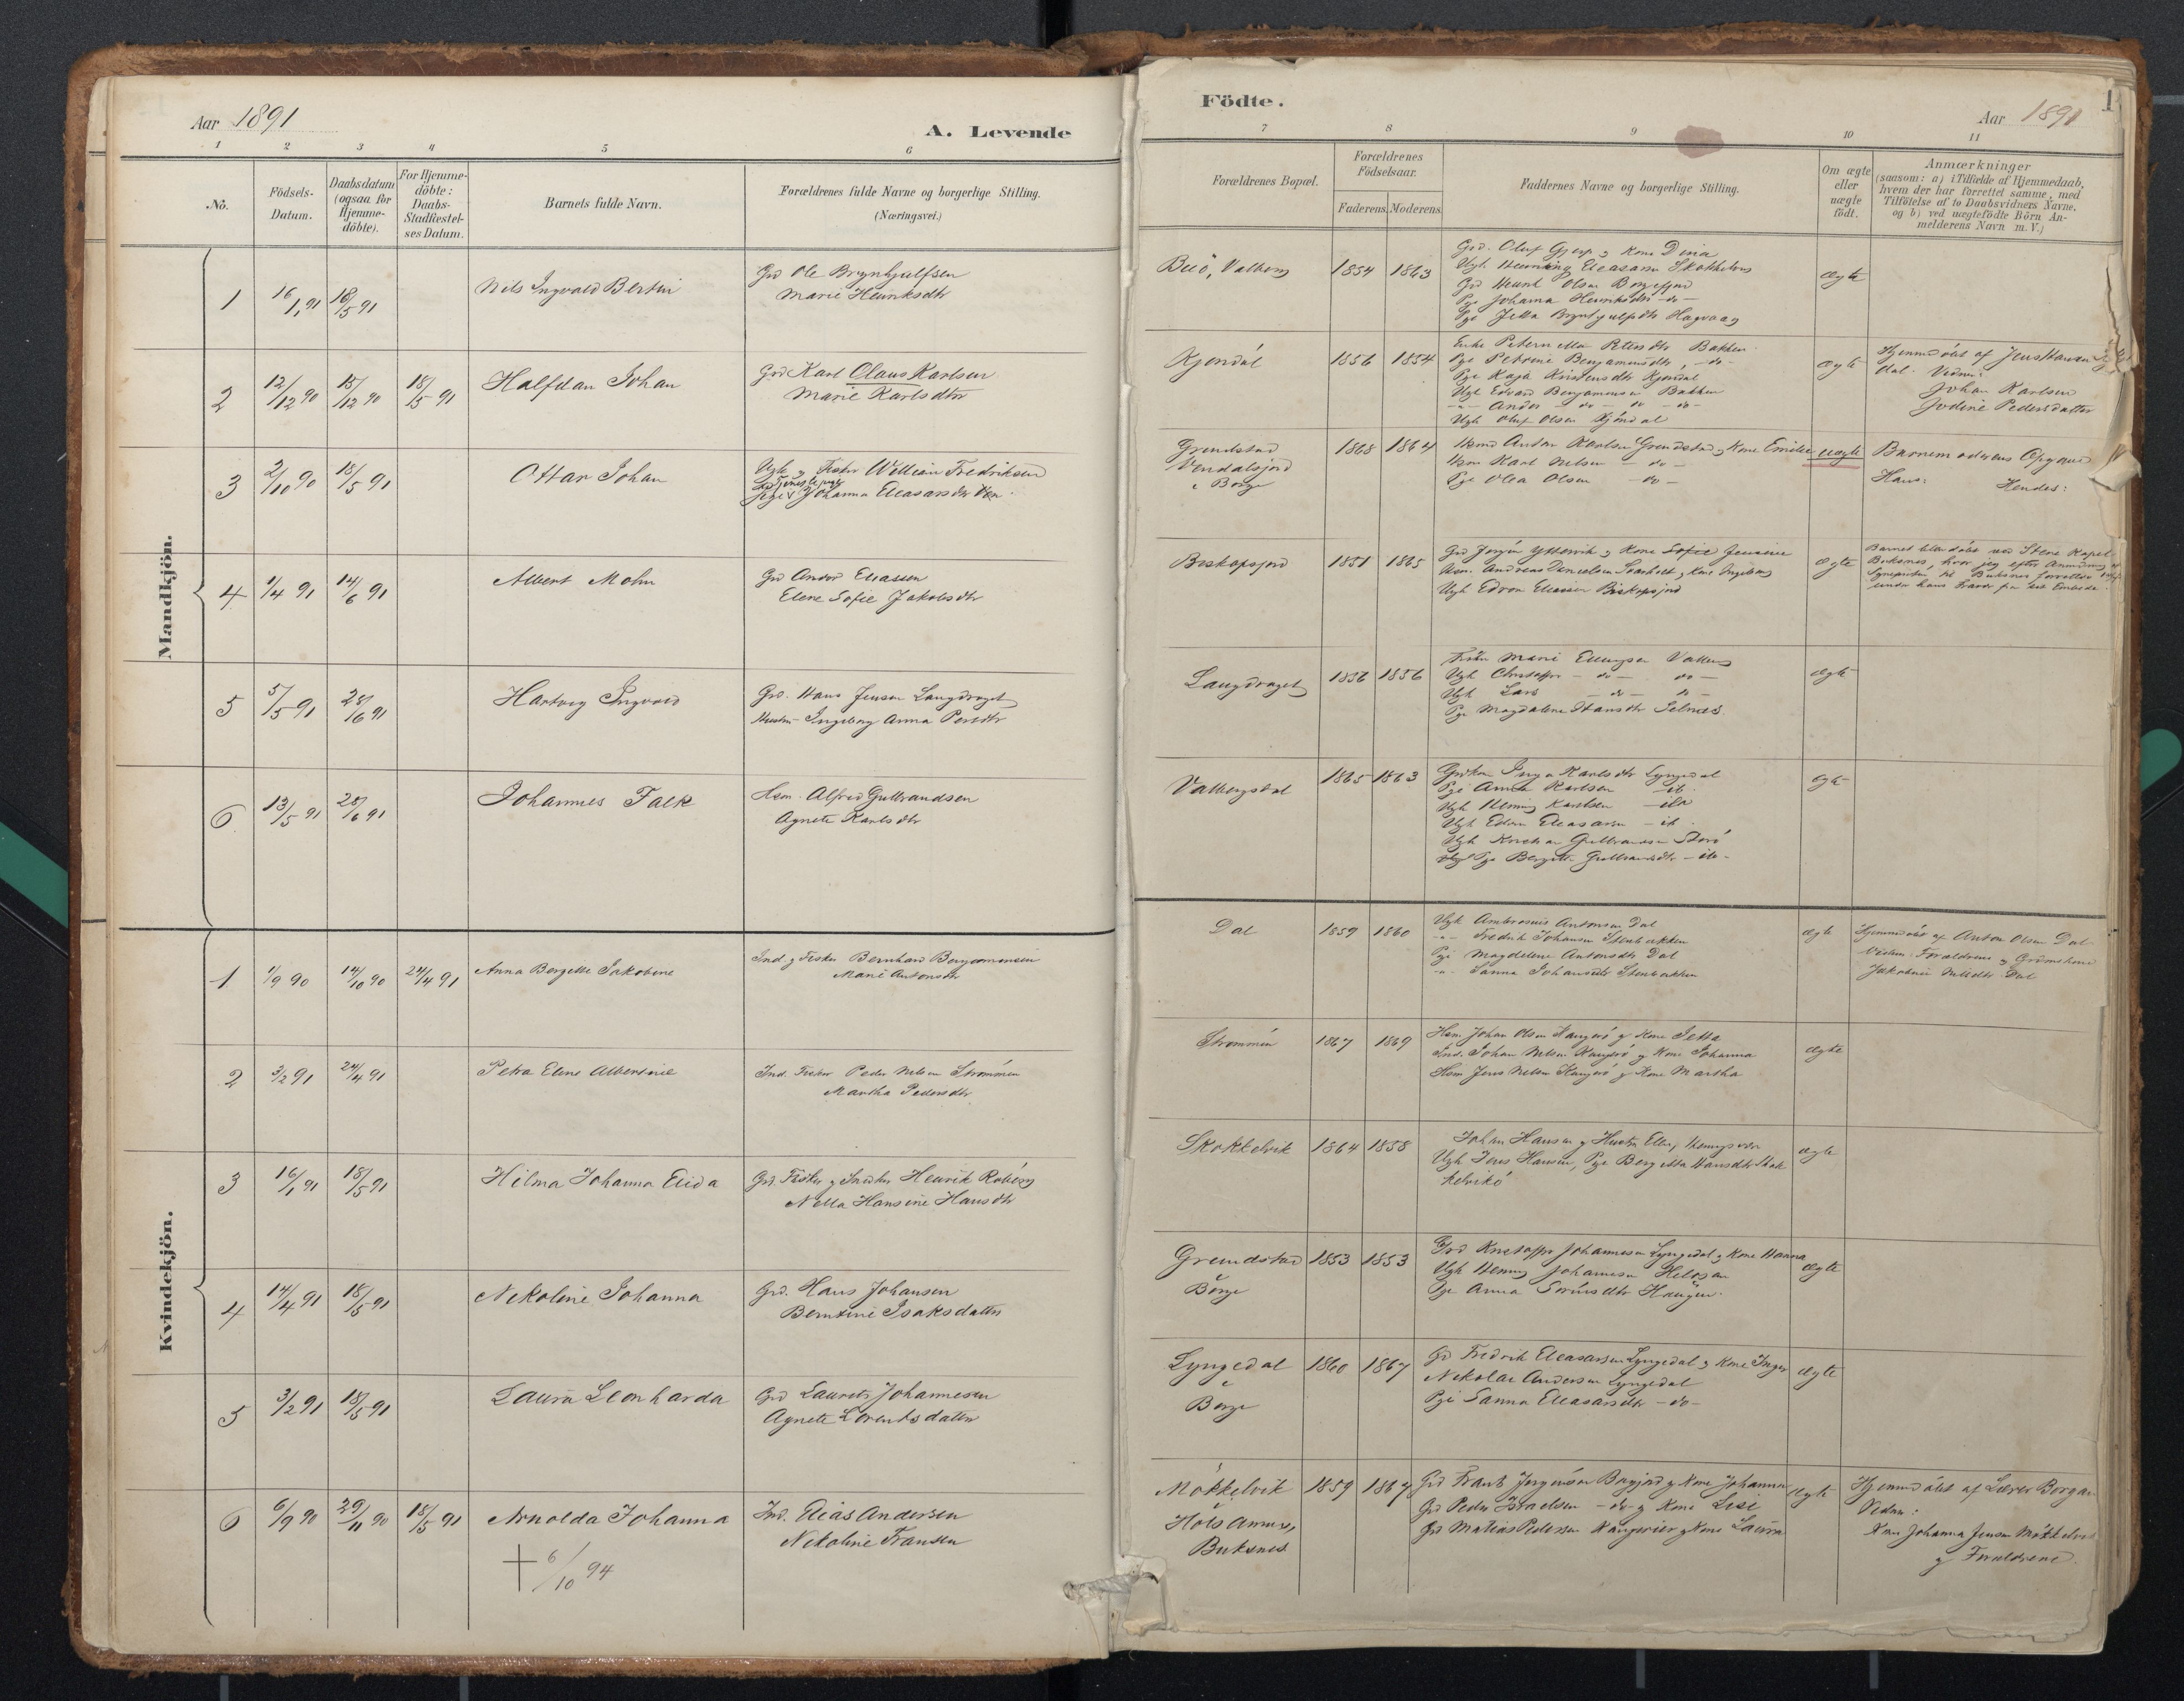 Aar 1891
A. Levende
1 2 3 4 5 6
No.
Födsels-
Datum.
Daabsdatum
(ogsaa for
Hjemme-
döbte).
For Hjemme-
döbte:
Daabs-
Stadfæstel-
ses Datum.
Barnets fulde Navn.
Forældrenes fulde Navne og borgerlige Stilling.
(Næringsvei.)
Mandkjön.
1 16/1 91 18/5 91 Nils Ingvald Bertin
Grd Ole Brynhjulfsen
Marie Henriksdtr
2 12/12 90 15/12 90 18/5 91 Halfdan Johan
Grd Karl Olaus Karlsen
Marie Karlsdtr
3 2/10 90 18/5 91 Ottar Johan
Ugk og Fisker William Fredriksen
Pige Johanna Eleasarsdtr
4 1/4 91 14/6 91 Albert Mohn
Grd Andor Eliassen
Elene Sofie Jakobsdtr
5 5/5 91 28/6 91 Hartvig Ingvald
Grd. Hans Jensen Langdraget
Hustru Ingeborg Anna Persdtr
6 13/5 91 28/6 91 Johannes Falk
Hsm. Alfred Gulbrandsen
Agnete Karlsdtr
Kvindekjön.
1 1/9 90 14/10 90 24/4 91 Anna Bergitte Jakobine
Ind og Fisker Bernhard Benjamensen
Marie Antonsdtr
2 3/2 91 24/4 91 Petra Elene Albertine
Ind. Fisker Peder Nelsen Strømmen
Martha Pedersdtr
3 16/1 91 18/5 91 Hilma Johanna Elida
Grd. Fisker og Snedker Henrik Roberg
Nella Hansine Hansdtr
4 14/4 91 18/5 91 Nekoline Johanna
Grd. Hans Johansen
Berntine Isaksdatter
5 3/2 91 18/5 91 Laura Leonharda
Grd Laurits Johannesen
Agnete Lorentsdatter
6 6/9 90 29/11 90 18/5 91 Arnolda Johanna
Ind. Elias Andersen
Nekoline Fransen
† 6/10 94
Födte.
Aar 1891
1
7 8 9 10 11
Forældrenes Bopæl.
Forældrenes
Födselsaar.
Faderens. Moderens.
Faddernes Navne og borgerlige Stilling.
Om ægte
eller
uægte
födt.
Anmærkninger
(saasom: a) i Tilfælde af Hjemmedaab,
hvem der har forrettet samme, med
Tilföielse af to Daabsvidners Navne.
og b) ved uægtefödte Börn An-
melderens Navn m. V.)
Buö, Valberg 1854 1863
Grd. Oluf Gjerp og Kone Dina
Ugk. Henning Eleasarsen
Grd Henrik Olsen
Pge Johanna Henriksdtr -do-
Pge Jetta Brynhjulfsdtr Hagvaag
ægte
Kjøndal 1856 1854
Enke Peternella Petersdtr Bakken
Pge Petrine Benjamensdtr -do-
Pge Kaja Kristensdtr Kjøndal
Ugk Edvard Benjamensen Bakken
-"- Andor -do- do -do-
Ugk Oluf Olsen Kjøndal
ægte
Hjemmedøbt af Jens Hansen
Dal. Vidner:
Johan Karlsen
Jodine Pedersdatter
Grundstad
Vendalsjord
i Borge
1868 1864
Hsmd Anton Karlsen Grundstad og Kone Emilie
Hsm Karl Nelsen -do-
Pge Olea Olsen -do-
uægte
Barnemoderens Opgave
Hans: Hendes:
Biskopsjord 1851 1865
Grd Jørgen Ytterrvik og Kone Sofie Jensine
Hsm. Andreas Danielsen og Kone Ingeborg
Ugk Edvon Eliassen Biskopsjord
ægte
Barnet blev døbt ved Stene Kapel
Buksnes, hvor jeg efter Anmodning af
Sognepresten til Buksnes forrettede
under hans Fravær fra sit Embede.
Langdraget 1856 1856
Marie Ellingsen Valberg
Ugk Christoffer -do- do-
Ugk Lars -do- do-
Pge Magdalene Hansdtr Selnes
ægte
Valbergsdal 1865 1863
Inga Karlsdtr Lyngedal
Pge Anna Karlsen -it-
Ugk Henning Karlsen -ita
Ugk Edvin Eleasarsen -it-
Ugk Kristian Gulbrandsen Storö
Pge Bergitte Gulbrandsdtr -ita-
ægte
Dal 1859 1860
Ugk Ambrosius Antonsen Dal
-"- Fredrik Johansen Stenbakken
Pge Magdelene Antonsdtr Dal
-"- Sanna Johansdtr Stenbakken
ægte
Hjemmedøbt af Anton Olsen Dal
Vidner. Forældrene og Grdmskone
Jakobine Nelsdtr Dal
Strømmen 1867 1869
Hsm Johan Olsen Haugerö og Kone Jetta
Ind. Johan Nelsen Haugerö og Kone Johanna
Hsm Jens Nelsen Haugerö og Kone Martha
ægte
Skokkelvik 1864 1858
Johan Hansen og Hustru Ellen,
Ugk Jens Hansen, Pge Bergitta Hansdtr Skok
kelvikö
ægte
Grundstad
Borge
1853 1853
Grd Kristoffer Johannesen Lyngedal og Kone Hanna
Ugk Henning Johannesen
Pge Anna Sørensdtr Haugen.
ægte
Lyngedal
i
Borge
1860 1867
Gd Fredrik Eleasarsen Lyngedal og Kone Inger
Nekolai Andersen Lyngedal
Pge Sanna Eleasarsdtr -do-
ægte
Møkkelvik
i
Hols Annex,
Buksnes
1859 1867
Grd Frants Jørgensen og Kone Johanna
Grd Peder Israelsen -do- og Kone Lise
Grd Matias Pedersen og Kone Laura
ægte
Hjemmedøbt af Lærer Borgan
Vidner:
Kone Johanna Jensen Møkkelvik
og Forældrene.